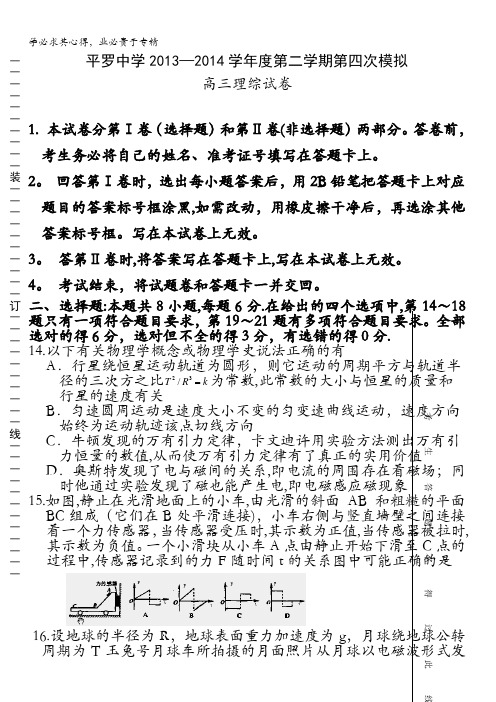 学必求其心得，业必贵于专精
平罗中学2013—2014学年度第二学期第四次模拟
高三理综试卷
1. 本试卷分第Ⅰ卷（选择题）和第Ⅱ卷(非选择题）两部分。答卷前，
考生务必将自己的姓名、准考证号填写在答题卡上。
2。 回答第Ⅰ卷时，选出每小题答案后，用2B铅笔把答题卡上对应
题目的答案标号框涂黑,如需改动，用橡皮擦干净后，再选涂其他
答案标号框。写在本试卷上无效。
3。 答第Ⅱ卷时,将答案写在答题卡上,写在本试卷上无效。
4。 考试结束，将试题卷和答题卡一并交回。
二、选择题:本题共8小题,每题6分.在给出的四个选项中,第14～18
题只有一项符合题目要求，第19～21题有多项符合题目要求。全部
选对的得6分，选对但不全的得3分，有选错的得0分.
14.以下有关物理学概念或物理学史说法正确的有
A．行星绕恒星运动轨道为圆形，则它运动的周期平方与轨道半
径的三次方之比T²/R³=k为常数,此常数的大小与恒星的质量和
行星的速度有关
B．匀速圆周运动是速度大小不变的匀变速曲线运动，速度方向
始终为运动轨迹该点切线方向
C．牛顿发现的万有引力定律，卡文迪许用实验方法测出万有引
力恒量的数值,从而使万有引力定律有了真正的实用价值
D．奥斯特发现了电与磁间的关系,即电流的周围存在着磁场；同
时他通过实验发现了磁也能产生电,即电磁感应磁现象
15.如图,静止在光滑地面上的小车,由光滑的斜面AB和粗糙的平面
BC组成（它们在B处平滑连接)，小车右侧与竖直墙壁之间连接
着一个力传感器，当传感器受压时,其示数为正值,当传感器被拉时,
其示数为负值。一个小滑块从小车A点由静止开始下滑至C点的
过程中,传感器记录到的力F随时间t的关系图中可能正确的是
力传感器
A B C D
16.设地球的半径为R，地球表面重力加速度为g，月球绕地球公转
周期为T玉兔号月球车所拍摄的月面照片从月球以电磁波形式发
装
订
线